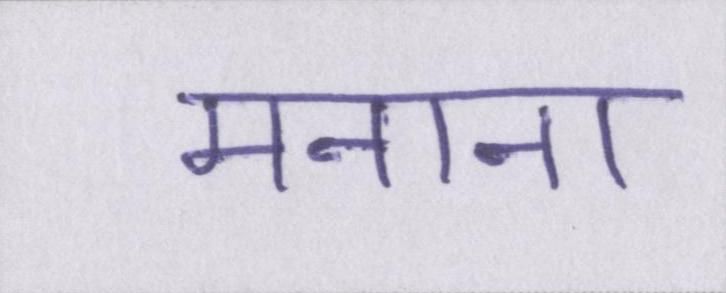 मनाना